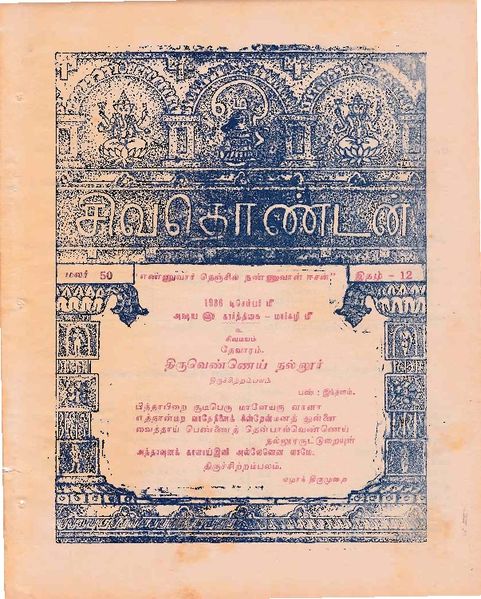 ஓம்
சிவதொண்டன்
மலர் 50
எண்ணுவார் நெஞ்சில் நண்ணுவான் ஈசன்."
இதழ் - 12
1986 டிசம்பர் மீ
அக்ஷய ௵ கார்த்திகை - மார்கழி மீ
உ
சிவமயம்
தேவாரம்.
திருவெண்ணெய் நல்லூர்
திருச்சிற்றம்பலம்
பண் : இந்தளம்.
பித்தாபிறை சூடிபெரு மானேயரு ளாளா
எத்தான்மற வாதேநினைக் கின்றேன்மனத் துன்னை
வைத்தாய் பெண்ணைத் தென்பால்வெண்ணெய்
நல்லூரருட்டுறையுள்
அத்தாவுனக் காளாய்இனி அல்லேனென லாமே.
திருச்சிற்றம்பலம்.
ஏழாந் திருமுறை